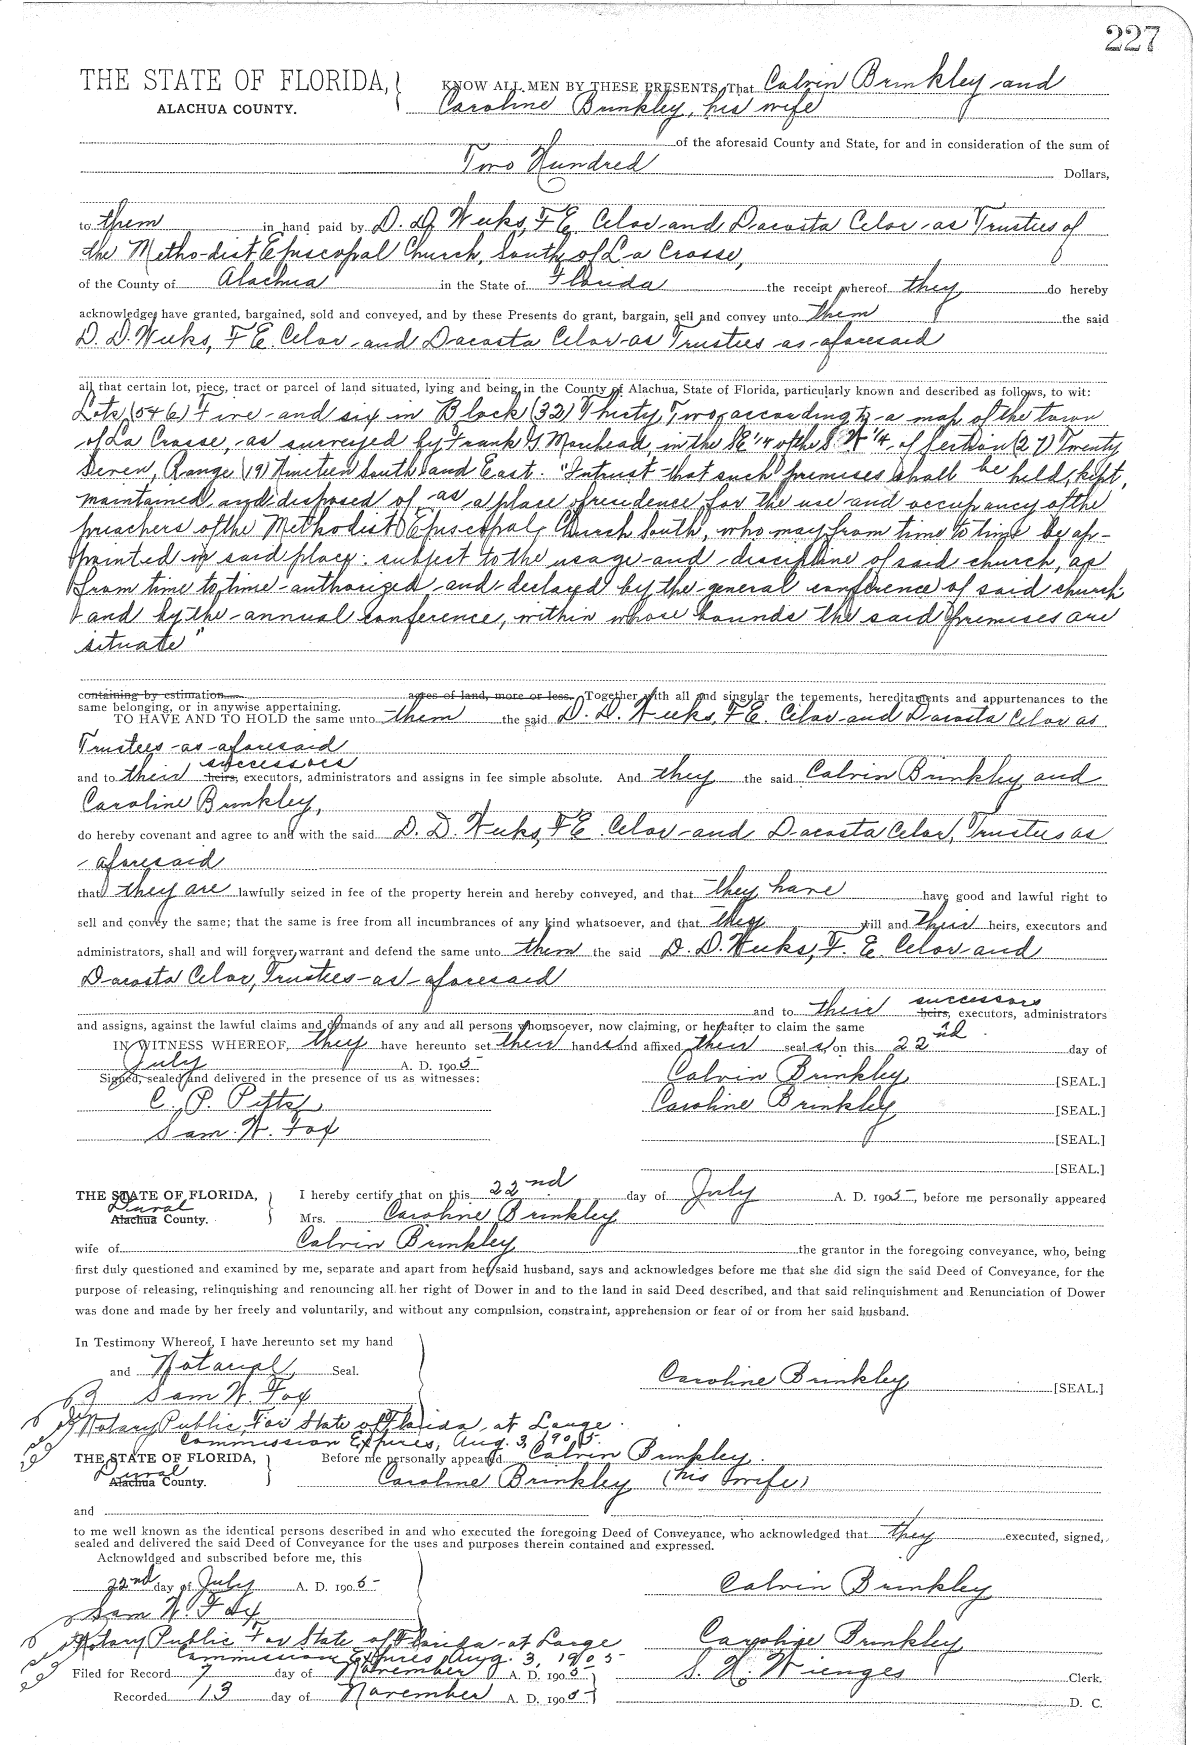 227
THE STATE OF FLORIDA, KNOW ALL MEN BY THESE PRESENTS, That Calvin Brinkley and
ALACHUA COUNTY. Caroline Brinkley, his wife
of the aforesaid County and State, for and in consideration of the sum of
Two Hundred Dollars,
to them in hand paid by D. D. Weeks, F. E. Celor and Dacosta Celor as Trusties of
the Methodist Episcopal Church, South, of La Crosse,
of the County of Alachua in the State of Florida the receipt whereof they do hereby
acknowledge, have granted, bargained, sold and conveyed, and by these Presents do grant, bargain, sell and convey unto them the said
D. D. Weeks, F. E. Celor and Dacosta Celor as Trusties as aforesaid
all that certain lot, piece, tract or parcel of land situated, lying and being in the County of Alachua, State of Florida, particularly known and described as follows, to wit:
Lots (5 & 6) Five and six in Block (32) Thirty Two, according to a map of the town
of La Crosse, as surveyed by Frank G Morehead, in the SE 1/4 of the S. W 1/4 of Section (27) Twenty
Seven, Range (19) Nineteen South and East. "In trust that such premises shall be held, kept,
maintained and disposed of, as a place of residence for the use and occupancy of the
preachers of the Methodist Episcopal Church South, who may from time to time be ap-
pointed in said place: subject to the usage and discipline of said church, as
from time to time authorized and declared by the general conference of said church
and by the annual conference, within whose bounds the said premises are
situate"
containing by estimation acres of land, more or less. Together with all and singular the tenements, hereditaments and appurtenances to the
same belonging, or in anywise appertaining.
TO HAVE AND TO HOLD the same unto them the said D. D. Weeks, F. E. Celor and Dacosta Celor as
Trustees as aforesaid
successors
and to their heirs, executors, administrators and assigns in fee simple absolute. And they the said Calvin Brinkley and
Caroline Brinkley,
do hereby covenant and agree to and with the said D. D. Weeks, F. E. Celor and Dacosta Celor, Trusties as
aforesaid
that they are lawfully seized in fee of the property herein and hereby conveyed, and that they have have good and lawful right to
sell and convey the same; that the same is free from all incumbrances of any kind whatsoever, and that they will and their heirs, executors and
administrators, shall and will forever warrant and defend the same unto them the said D. D. Weeks, F. E. Celor and
Dacosta Celor, Trusties as aforesaid
successors
and to their heirs, executors, administrators
and assigns, against the lawful claims and demands of any and all persons whomsoever, now claiming, or hereafter to claim the same
IN WITNESS WHEREOF, they have hereunto set their hands and affixed their seals on this 22nd day of
July A. D. 1905
Signed, sealed and delivered in the presence of us as witnesses: Calvin Brinkley [SEAL.]
C. P. Pitts Caroline Brinkley [SEAL.]
Sam. W. Fox [SEAL.]
[SEAL.]
THE STATE OF FLORIDA, I hereby certify that on this 22nd day of July A. D. 1905, before me personally appeared
Duval
Alachua County. Mrs. Caroline Brinkley
wife of Calvin Brinkley the grantor in the foregoing conveyance, who, being
first duly questioned and examined by me, separate and apart from her said husband, says and acknowledges before me that she did sign the said Deed of Conveyance, for the
purpose of releasing, relinquishing and renouncing all her right of Dower in and to the land in said Deed described, and that said relinquishment and Renunciation of Dower
was done and made by her freely and voluntarily, and without any compulsion, constraint, apprehension or fear of or from her said husband.
In Testimony Whereof, I have hereunto set my hand
and Notarial Seal. Caroline Brinkley [SEAL.]
Sam W. Fox
Notary Public, For State of Florida, at Large.
Commission Expires, Aug. 3, 1905.
THE STATE OF FLORIDA, Before me personally appeared Calvin Brinkley.
Duval
Alachua County. Caroline Brinkley (his wife)
and
to me well known as the identical persons described in and who executed the foregoing Deed of Conveyance, who acknowledged that they executed, signed,
sealed and delivered the said Deed of Conveyance for the uses and purposes therein contained and expressed.
Acknowldged and subscribed before me, this
22nd day of July A. D. 1905 Calvin Brinkley
Sam W. Fox
Notary Public For State of Florida at Large Caroline Brinkley
Commission Expires Aug. 3, 1905
Filed for Record 7 day of November A. D. 1905 S. H. Wienges Clerk.
Recorded 13 day of November A. D. 1905 D. C.